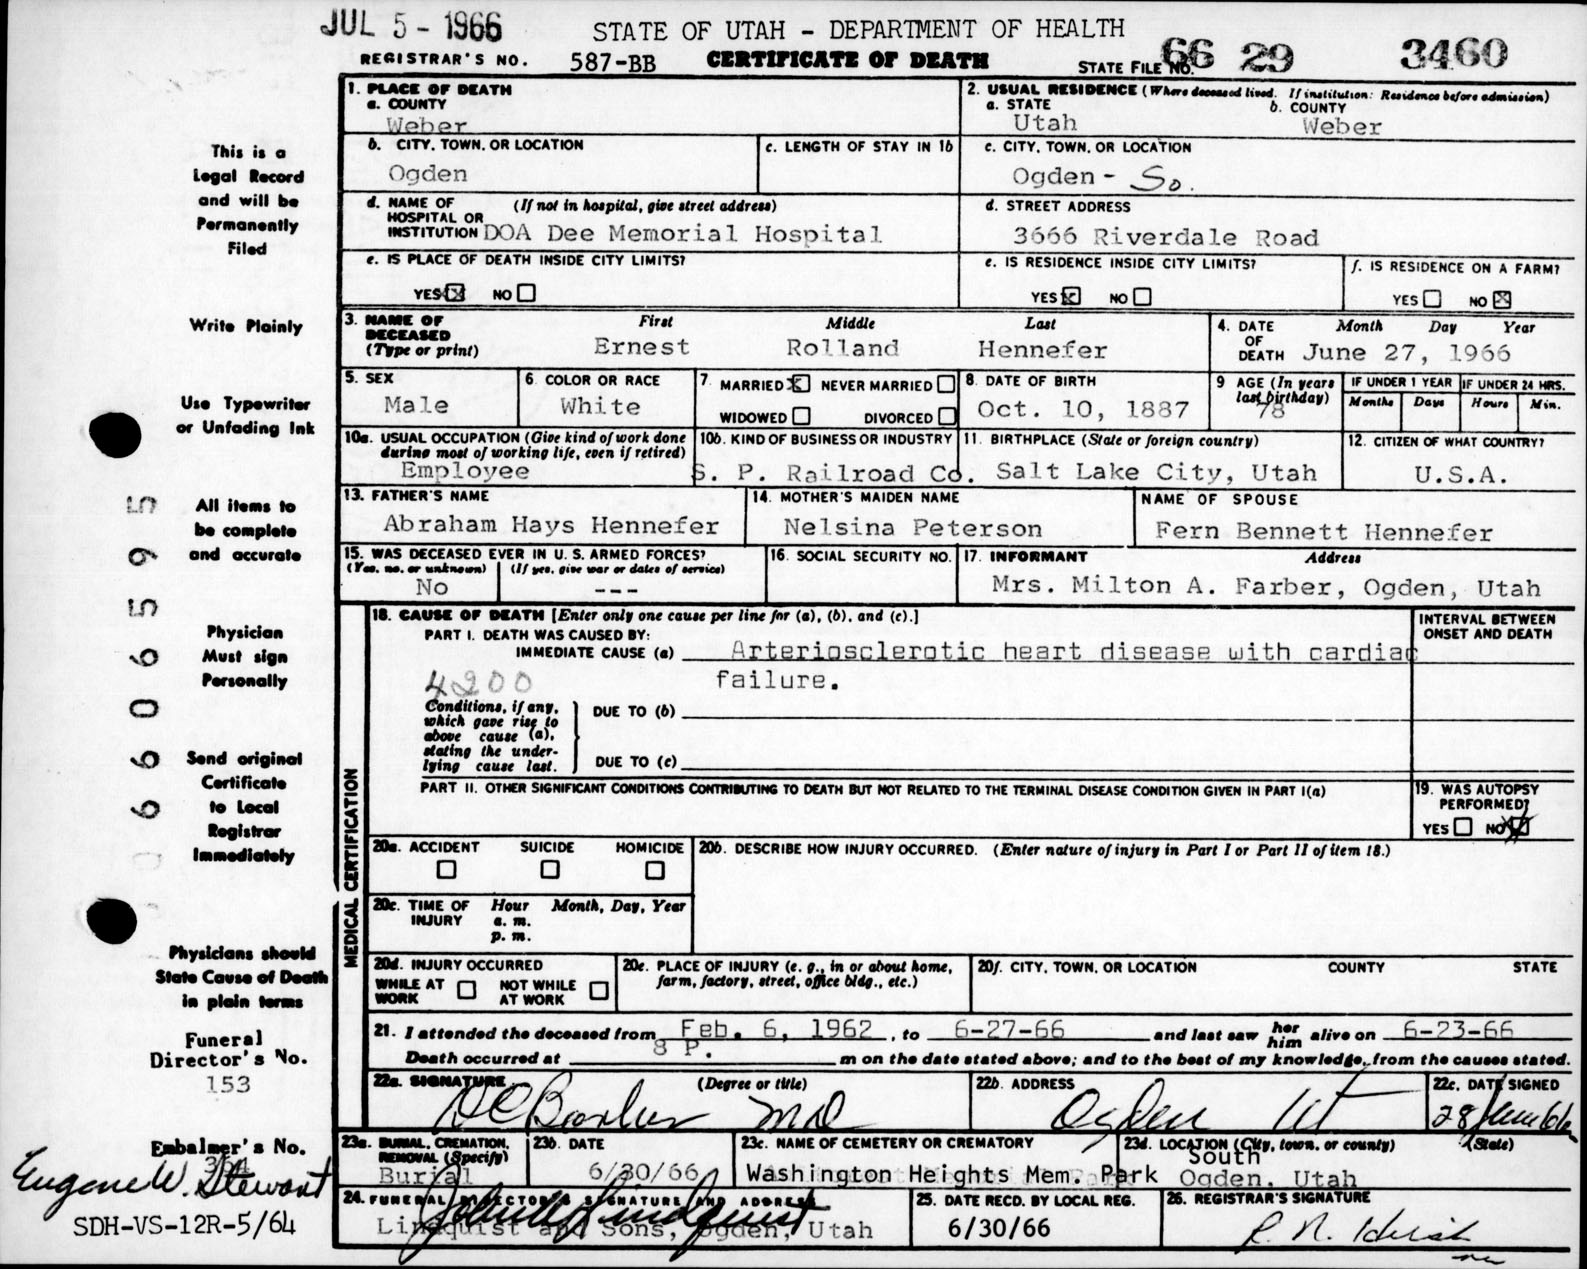 JUL 5 - 1966
STATE OF UTAH - DEPARTMENT OF HEALTH
REGISTRAR'S NO. 587-BB CERTIFICATE OF DEATH STATE FILE NO. 66 29 3460
1. PLACE OF DEATH
a. COUNTY
Weber
2. USUAL RESIDENCE (Where deceased lived. If institution: Residence before admission)
a. STATE b. COUNTY
Utah Weber
b. CITY, TOWN, OR LOCATION
Ogden
c. LENGTH OF STAY IN 1b
c. CITY, TOWN, OR LOCATION
Ogden - So.
d. NAME OF (If not in hospital, give street address)
HOSPITAL OR
INSTITUTION DOA Dee Memorial Hospital
d. STREET ADDRESS
3666 Riverdale Road
e. IS PLACE OF DEATH INSIDE CITY LIMITS?
YES NO
e. IS RESIDENCE INSIDE CITY LIMITS?
YES NO
f. IS RESIDENCE ON A FARM?
YES NO
3. NAME OF First Middle Last
DECEASED
(Type or print) Ernest Rolland Hennefer
4. DATE Month Day Year
OF
DEATH June 27, 1966
5. SEX
Male
6. COLOR OR RACE
White
7. MARRIED NEVER MARRIED
WIDOWED DIVORCED
8. DATE OF BIRTH
Oct. 10, 1887
9 AGE (In years
last birthday)
78
IF UNDER 1 YEAR IF UNDER 24 HRS.
Months Days Hours Min.
10a. USUAL OCCUPATION (Give kind of work done
during most of working life, even if retired)
Employee
10b. KIND OF BUSINESS OR INDUSTRY
S. P. Railroad Co.
11. BIRTHPLACE (State or foreign country)
Salt Lake City, Utah
12. CITIZEN OF WHAT COUNTRY?
U.S.A.
13. FATHER'S NAME
Abraham Hays Hennefer
14. MOTHER'S MAIDEN NAME
Nelsina Peterson
NAME OF SPOUSE
Fern Bennett Hennefer
15. WAS DECEASED EVER IN U. S. ARMED FORCES?
(Yes, no, or unknown) (If yes, give war or dates of service)
No ---
16. SOCIAL SECURITY NO.
17. INFORMANT Address
Mrs. Milton A. Farber, Ogden, Utah
MEDICAL CERTIFICATION
18. CAUSE OF DEATH [Enter only one cause per line for (a), (b), and (c).]
PART I. DEATH WAS CAUSED BY:
IMMEDIATE CAUSE (a) Arteriosclerotic heart disease with cardiac
failure.
4200
INTERVAL BETWEEN
ONSET AND DEATH
Conditions, if any,
which gave rise to
above cause (a),
stating the under-
lying cause last.
DUE TO (b)
DUE TO (c)
PART II. OTHER SIGNIFICANT CONDITIONS CONTRIBUTING TO DEATH BUT NOT RELATED TO THE TERMINAL DISEASE CONDITION GIVEN IN PART I(a)
19. WAS AUTOPSY
PERFORMED?
YES NO
20a. ACCIDENT SUICIDE HOMICIDE
20b. DESCRIBE HOW INJURY OCCURRED. (Enter nature of injury in Part I or Part II of item 18.)
20c. TIME OF Hour Month, Day, Year
INJURY a. m.
p. m.
20d. INJURY OCCURRED
WHILE AT NOT WHILE
WORK AT WORK
20e. PLACE OF INJURY (e. g., in or about home,
farm, factory, street, office bldg., etc.)
20f. CITY, TOWN, OR LOCATION COUNTY STATE
21. I attended the deceased from Feb. 6, 1962, to 6-27-66 and last saw her him alive on 6-23-66
Death occurred at 8 P. m on the date stated above; and to the best of my knowledge, from the causes stated.
22a. SIGNATURE (Degree or title)
MD
22b. ADDRESS
Ogden Ut
22c. DATE SIGNED
28 June 66
23a. BURIAL, CREMATION,
REMOVAL (Specify)
Burial
23b. DATE
6/30/66
23c. NAME OF CEMETERY OR CREMATORY
Washington Heights Mem. Park
23d. LOCATION (City, town, or county) (State)
South
Ogden, Utah
24. FUNERAL DIRECTOR'S SIGNATURE AND ADDRESS
Lindquist and Sons, Ogden, Utah
25. DATE RECD. BY LOCAL REG.
6/30/66
26. REGISTRAR'S SIGNATURE
This is a
Legal Record
and will be
Permanently
Filed
Write Plainly
Use Typewriter
or Unfading Ink
All items to
be complete
and accurate
Physician
Must sign
Personally
Send original
Certificate
to Local
Registrar
Immediately
Physicians should
State Cause of Death
in plain terms
Funeral
Director's No.
153
Embalmer's No.
Eugene W. Stewart
SDH-VS-12R-5/64
6606595